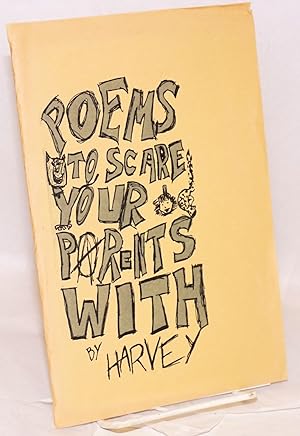 POEMS
TO SCARE
YOUR
PARENTS
WITH
BY HARVEY